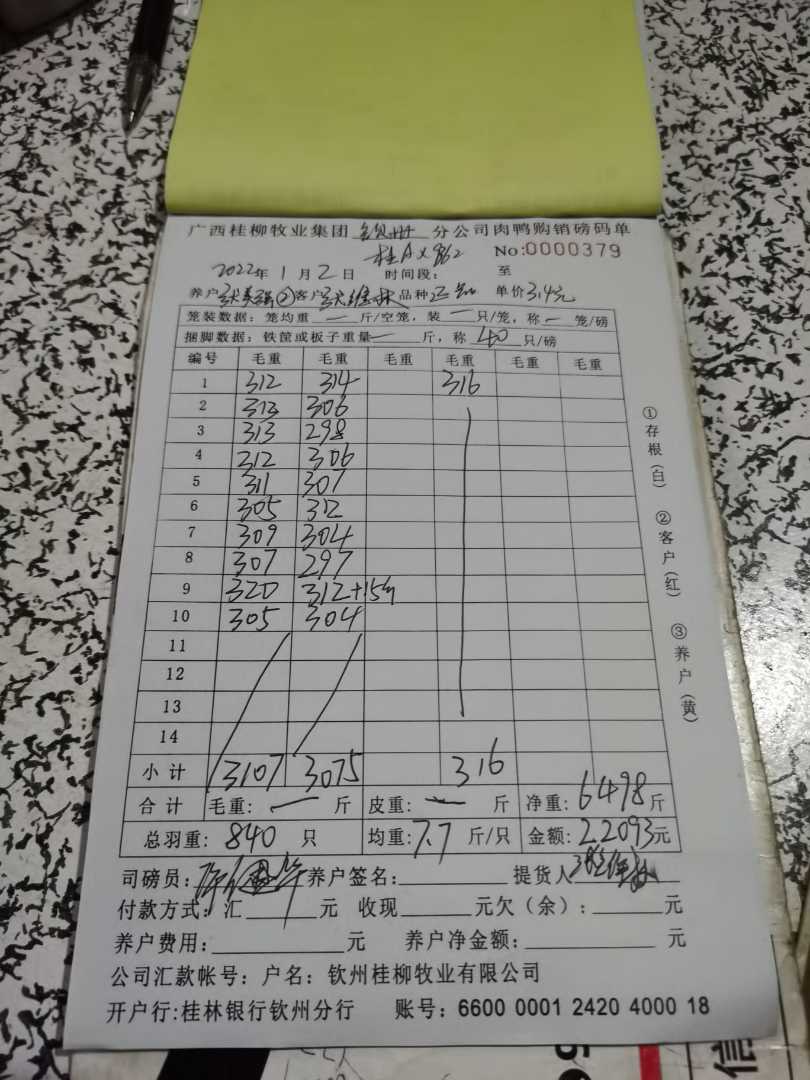 广西桂柳牧业集团 钦州 分公司肉鸭购销磅码单
桂A X 862
No:0000379
2022年 1 月 2 日 时间段: 至
养户 ② 客户 品种 正品 单价 3.4元
笼装数据: 笼均重 — 斤/空笼, 装 — 只/笼, 称 — 笼/磅
捆脚数据: 铁筐或板子重量 — 斤, 称 40 只/磅
编号 毛重 毛重 毛重 毛重 毛重 毛重
1 312 314 316
2 313 306
3 313 298
4 312 306
5 311 307
6 305 312
7 309 304
8 307 297
9 320 312+15
10 305 304
11
12
13
14
小计 3107 3075 316
合计 毛重: — 斤 皮重: — 斤 净重: 6498斤
总羽重: 840 只 均重: 7.7 斤/只 金额: 22093元
司磅员: 养户签名: 提货人
付款方式: 汇 元 收现 元欠(余): 元
养户费用: 元 养户净金额: 元
公司汇款帐号: 户名: 钦州桂柳牧业有限公司
开户行:桂林银行钦州分行 账号: 6600 0001 2420 4000 18
①存根(白) ②客户(红) ③养户(黄)
信